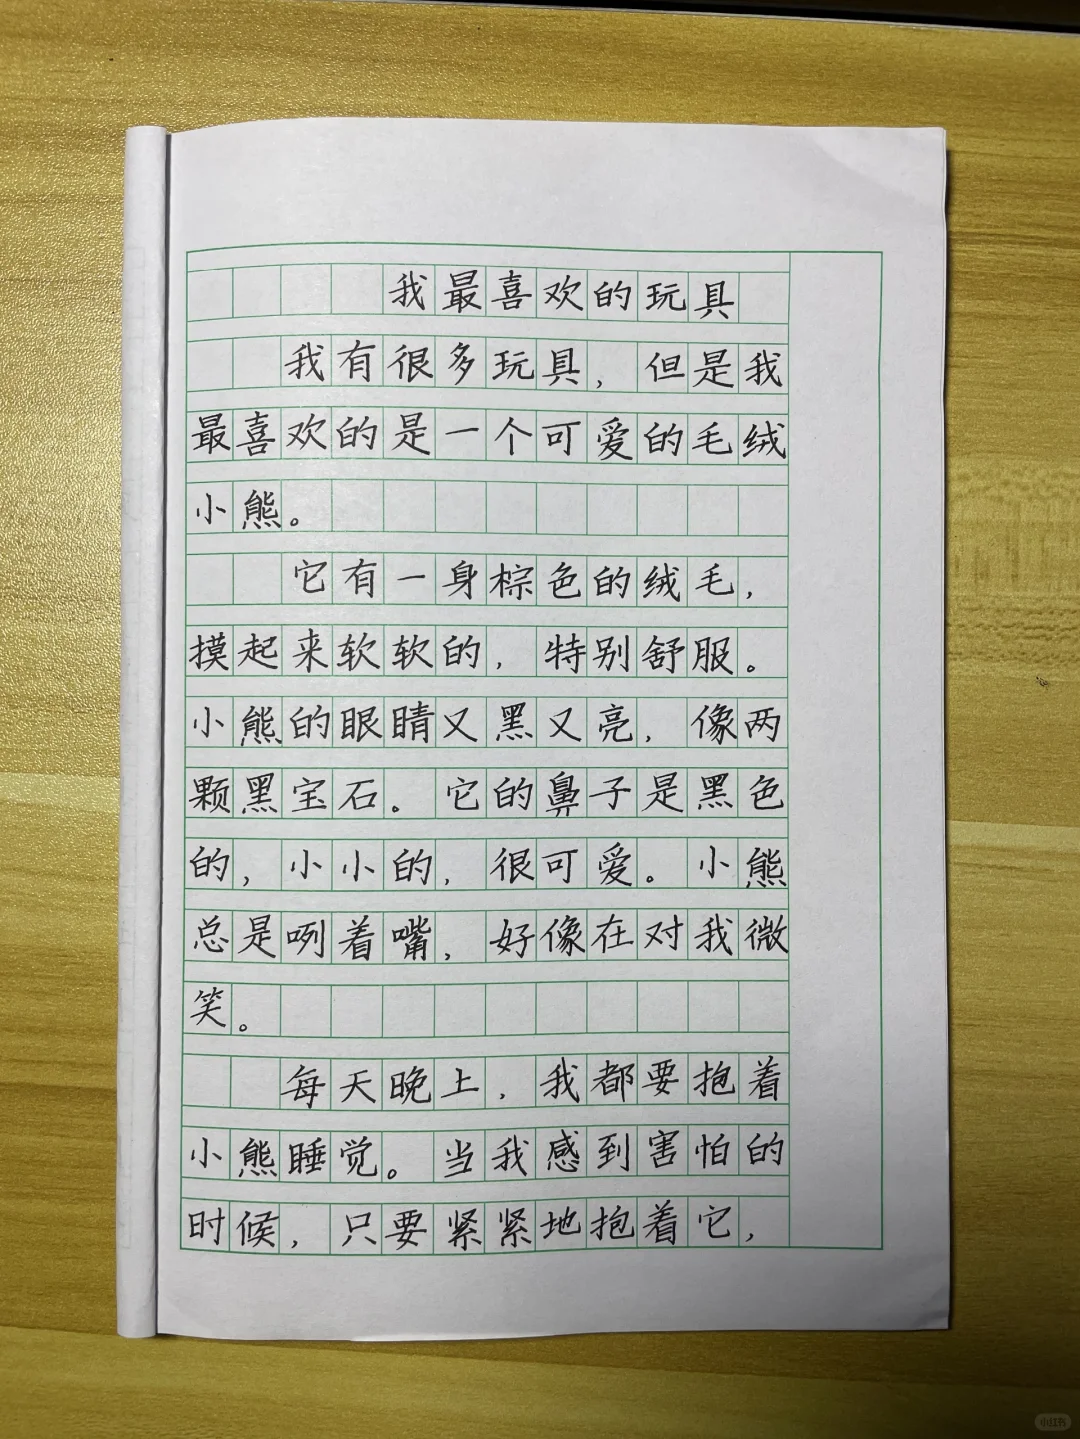 我最喜欢的玩具
我有很多玩具，但是我
最喜欢的是一个可爱的毛绒
小熊。
它有一身棕色的绒毛，
摸起来软软的，特别舒服。
小熊的眼睛又黑又亮，像两
颗黑宝石。它的鼻子是黑色
的，小小的，很可爱。小熊
总是咧着嘴，好像在对我微
笑。
每天晚上，我都要抱着
小熊睡觉。当我感到害怕的
时候，只要紧紧地抱着它，
小红书